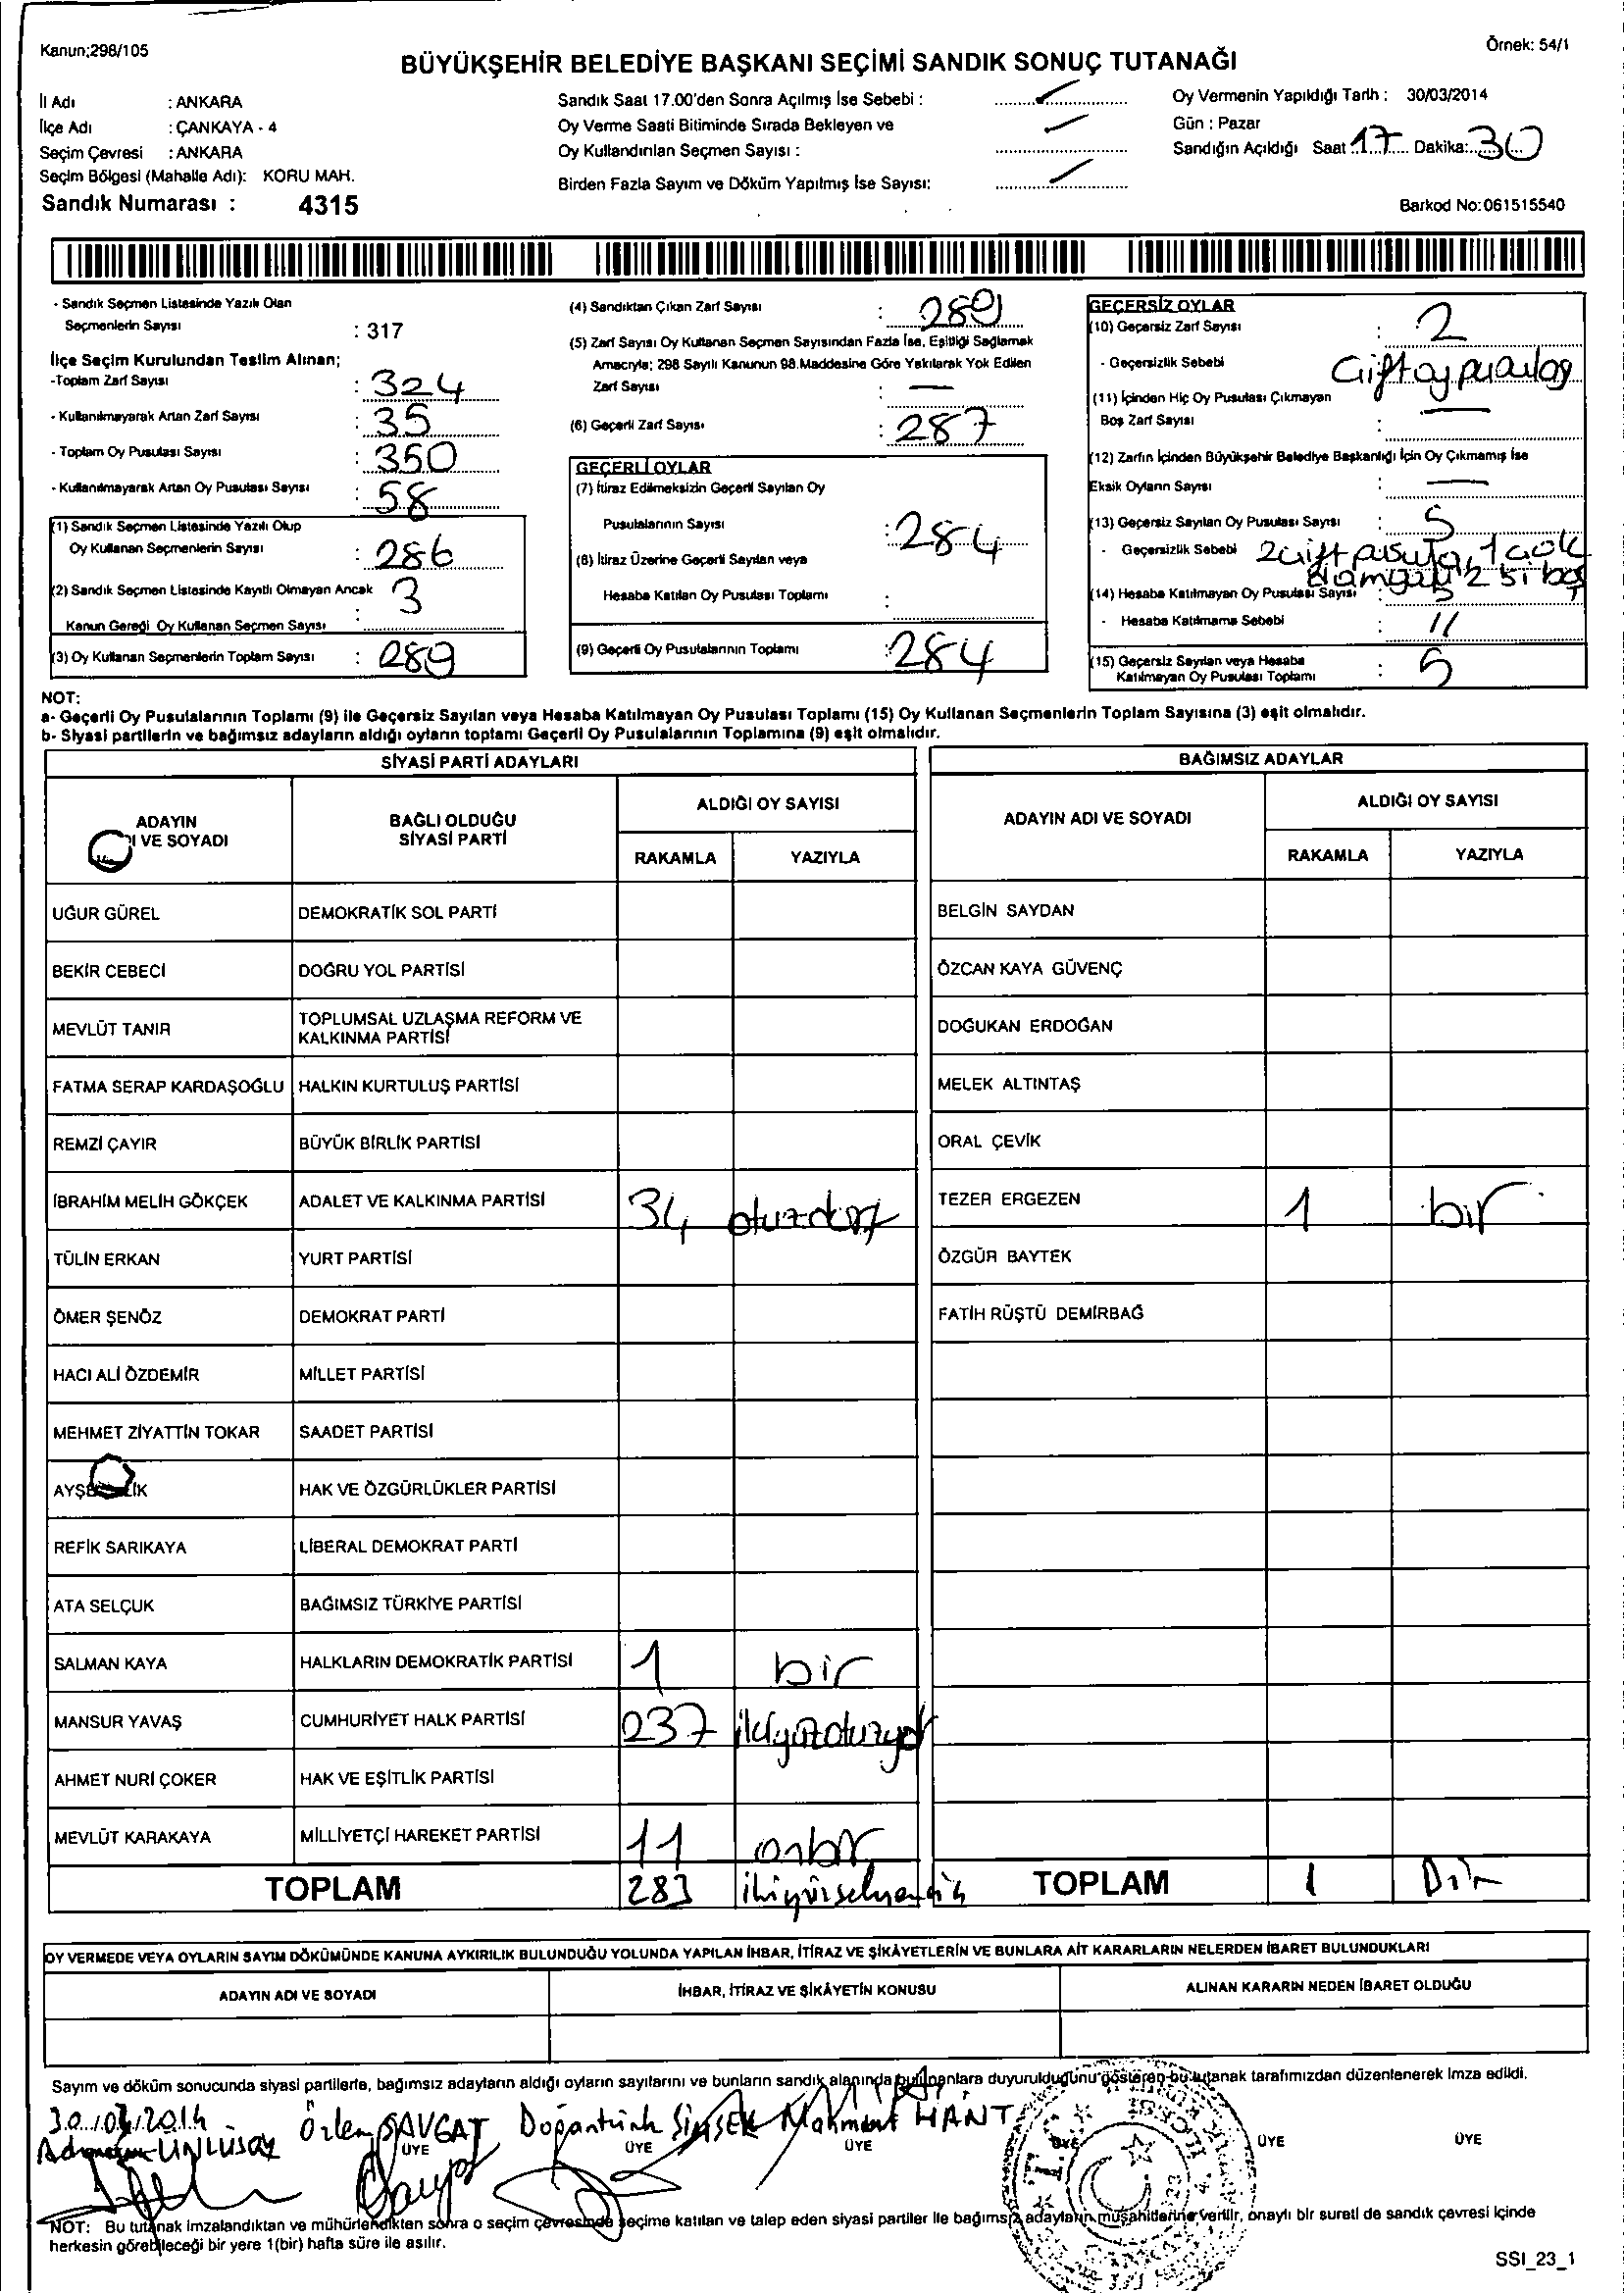 Kanun;298/105
Örnek: 54/1
BÜYÜKŞEHİR BELEDİYE BAŞKANI SEÇİMİ SANDIK SONUÇ TUTANAĞI
İl Adı : ANKARA
İlçe Adı : ÇANKAYA - 4
Seçim Çevresi : ANKARA
Seçim Bölgesi (Mahalle Adı): KORU MAH.
Sandık Numarası : 4315
Sandık Saat 17.00'den Sonra Açılmış İse Sebebi :
Oy Verme Saati Bitiminde Sırada Bekleyen ve
Oy Kullandırılan Seçmen Sayısı :
Birden Fazla Sayım ve Döküm Yapılmış İse Sayısı:
Oy Vermenin Yapıldığı Tarih : 30/03/2014
Gün : Pazar
Sandığın Açıldığı Saat 17 Dakika: 30
Barkod No:061515540
- Sandık Seçmen Listesinde Yazılı Olan
Seçmenlerin Sayısı : 317
İlçe Seçim Kurulundan Teslim Alınan;
-Toplam Zarf Sayısı : 324
- Kullanılmayarak Artan Zarf Sayısı : 35
- Toplam Oy Pusulası Sayısı : 350
- Kullanılmayarak Artan Oy Pusulası Sayısı : 58
(1) Sandık Seçmen Listesinde Yazılı Olup
Oy Kullanan Seçmenlerin Sayısı : 286
(2) Sandık Seçmen Listesinde Kayıtlı Olmayan Ancak
Kanun Gereği Oy Kullanan Seçmen Sayısı : 3
(3) Oy Kullanan Seçmenlerin Toplam Sayısı : 289
(4) Sandıktan Çıkan Zarf Sayısı : 289
(5) Zarf Sayısı Oy Kullanan Seçmen Sayısından Fazla İse, Eşitliği Sağlamak
Amacıyla; 298 Sayılı Kanunun 98.Maddesine Göre Yakılarak Yok Edilen
Zarf Sayısı : —
(6) Geçerli Zarf Sayısı : 287
GEÇERLİ OYLAR
(7) İtiraz Edilmeksizin Geçerli Sayılan Oy
Pusulalarının Sayısı : 284
(8) İtiraz Üzerine Geçerli Sayılan veya
Hesaba Katılan Oy Pusulası Toplamı :
(9) Geçerli Oy Pusulalarının Toplamı : 284
GEÇERSİZ OYLAR
(10) Geçersiz Zarf Sayısı : 2
- Geçersizlik Sebebi Çift oy pusulası
(11) İçinden Hiç Oy Pusulası Çıkmayan
Boş Zarf Sayısı : —
(12) Zarfın İçinden Büyükşehir Belediye Başkanlığı İçin Oy Çıkmamış İse
Eksik Oyların Sayısı : —
(13) Geçersiz Sayılan Oy Pusulası Sayısı : 5
- Geçersizlik Sebebi 2 çift pusula, 1 çok
damgalı 2 si boş
(14) Hesaba Katılmayan Oy Pusulası Sayısı : 5
- Hesaba Katılmama Sebebi : 11
(15) Geçersiz Sayılan veya Hesaba
Katılmayan Oy Pusulası Toplamı : 5
NOT:
a- Geçerli Oy Pusulalarının Toplamı (9) ile Geçersiz Sayılan veya Hesaba Katılmayan Oy Pusulası Toplamı (15) Oy Kullanan Seçmenlerin Toplam Sayısına (3) eşit olmalıdır.
b- Siyasi partilerin ve bağımsız adayların aldığı oyların toplamı Geçerli Oy Pusulalarının Toplamına (9) eşit olmalıdır.
SİYASİ PARTİ ADAYLARI
BAĞIMSIZ ADAYLAR
ADAYIN
I VE SOYADI
BAĞLI OLDUĞU
SİYASİ PARTİ
ALDIĞI OY SAYISI
RAKAMLA YAZIYLA
ADAYIN ADI VE SOYADI
ALDIĞI OY SAYISI
RAKAMLA YAZIYLA
UĞUR GÜREL DEMOKRATİK SOL PARTİ BELGİN SAYDAN
BEKİR CEBECİ DOĞRU YOL PARTİSİ ÖZCAN KAYA GÜVENÇ
MEVLÜT TANIR TOPLUMSAL UZLAŞMA REFORM VE
KALKINMA PARTİSİ DOĞUKAN ERDOĞAN
FATMA SERAP KARDAŞOĞLU HALKIN KURTULUŞ PARTİSİ MELEK ALTINTAŞ
REMZİ ÇAYIR BÜYÜK BİRLİK PARTİSİ ORAL ÇEVİK
İBRAHİM MELİH GÖKÇEK ADALET VE KALKINMA PARTİSİ 34 otuzdört TEZER ERGEZEN 1 bir
TÜLİN ERKAN YURT PARTİSİ ÖZGÜR BAYTEK
ÖMER ŞENÖZ DEMOKRAT PARTİ FATİH RÜŞTÜ DEMİRBAĞ
HACI ALİ ÖZDEMİR MİLLET PARTİSİ
MEHMET ZİYATTİN TOKAR SAADET PARTİSİ
HAK VE ÖZGÜRLÜKLER PARTİSİ
REFİK SARIKAYA LİBERAL DEMOKRAT PARTİ
ATA SELÇUK BAĞIMSIZ TÜRKİYE PARTİSİ
SALMAN KAYA HALKLARIN DEMOKRATİK PARTİSİ 1 bir
MANSUR YAVAŞ CUMHURİYET HALK PARTİSİ 237 ikiyüzotuzyedi
AHMET NURİ ÇOKER HAK VE EŞİTLİK PARTİSİ
MEVLÜT KARAKAYA MİLLİYETÇİ HAREKET PARTİSİ 11 onbir
TOPLAM 283 ikiyüzseksenüç TOPLAM 1 Bir
OY VERMEDE VEYA OYLARIN SAYIM DÖKÜMÜNDE KANUNA AYKIRILIK BULUNDUĞU YOLUNDA YAPILAN İHBAR, İTİRAZ VE ŞİKÂYETLERİN VE BUNLARA AİT KARARLARIN NELERDEN İBARET BULUNDUKLARI
ADAYIN ADI VE SOYADI İHBAR, İTİRAZ VE ŞİKÂYETİN KONUSU ALINAN KARARIN NEDEN İBARET OLDUĞU
Sayım ve döküm sonucunda siyasi partilerle, bağımsız adayların aldığı oyların sayılarını ve bunların sandık alanında bulunanlara duyurulduğunu gösteren bu tutanak tarafımızdan düzenlenerek imza edildi.
30/03/2014
ÜNLÜSOY Özlem SAVGAT Doğantürk ŞİMŞEK Mahmut HANT
ÜYE ÜYE ÜYE ÜYE ÜYE ÜYE
T.C.
NOT: Bu tutanak imzalandıktan ve mühürlendikten sonra o seçim çevresinde seçime katılan ve talep eden siyasi partiler ile bağımsız adayların müşahitlerine verilir, onaylı bir sureti de sandık çevresi içinde
herkesin görebileceği bir yere 1(bir) hafta süre ile asılır.
SSI_23_1